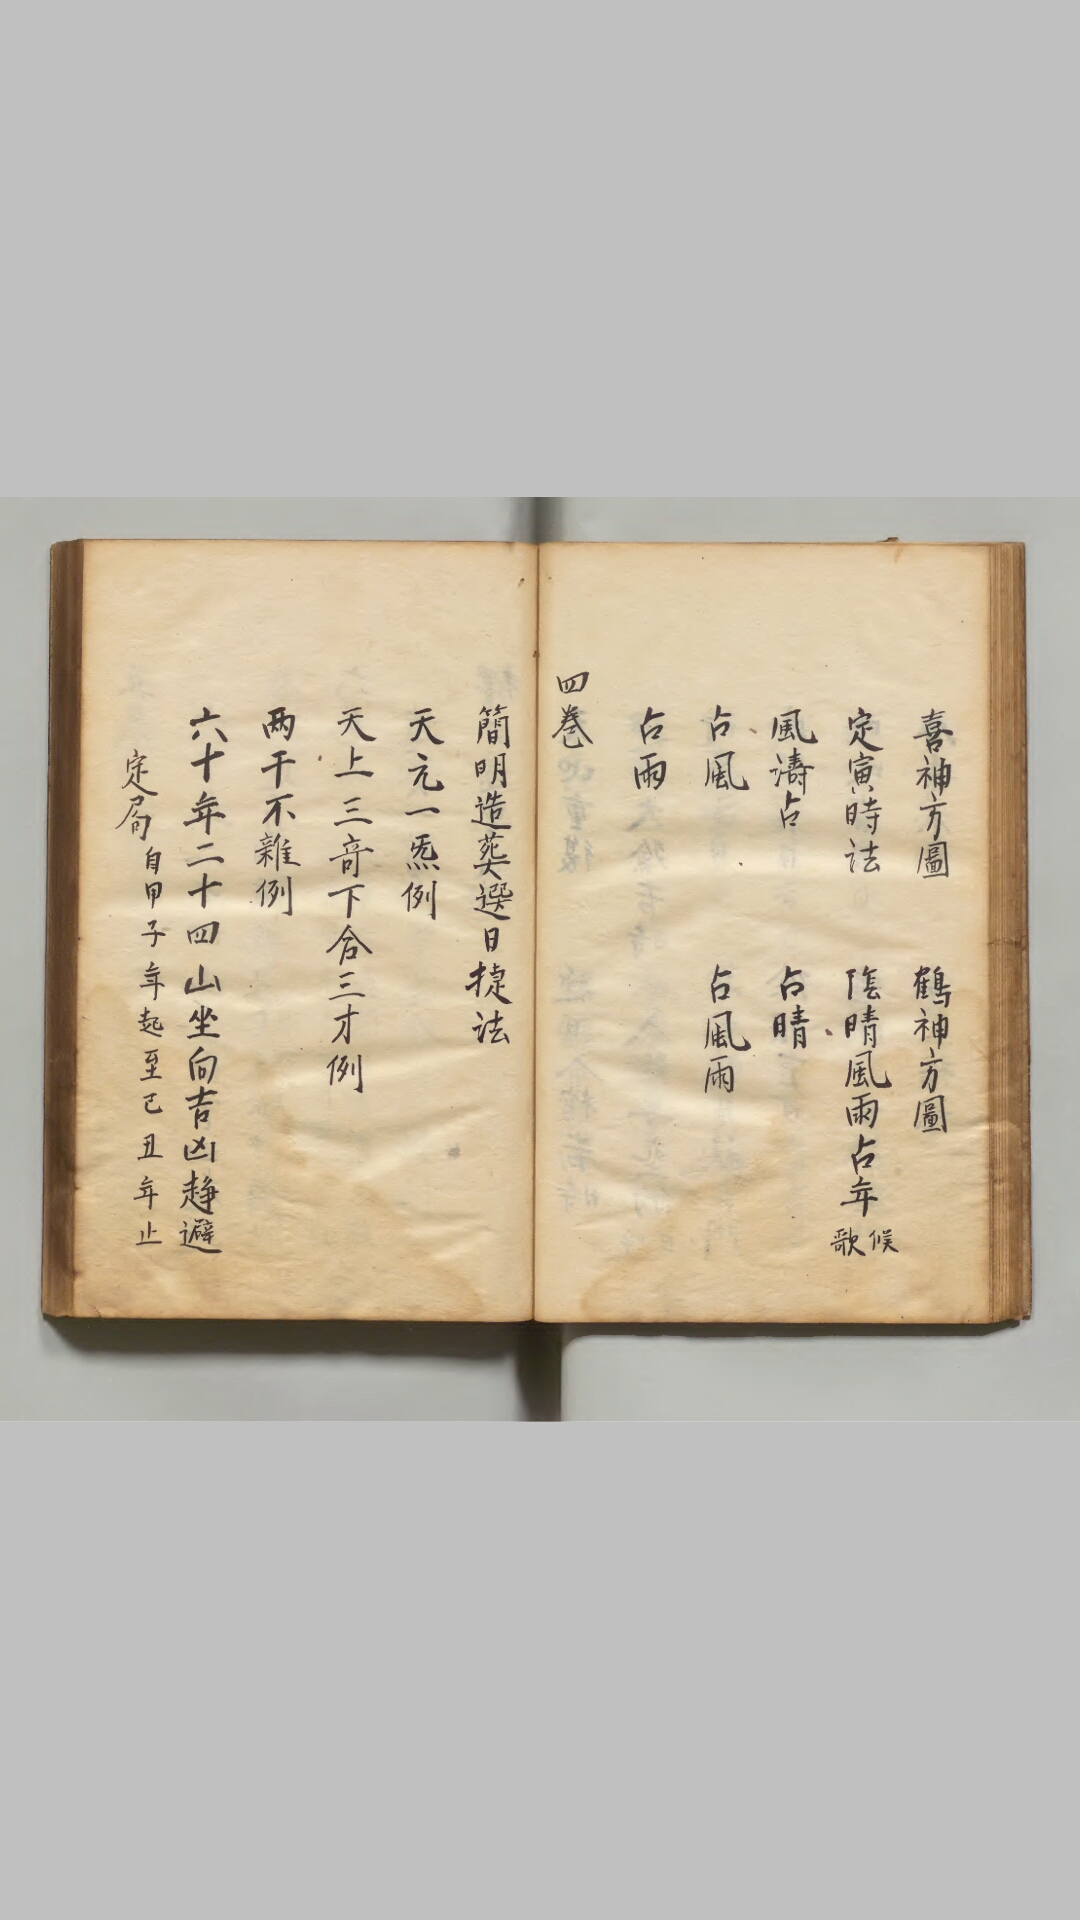 喜神方圖 鶴神方圖
定寅時法 陰晴風雨占年候歌
風濤占 占晴
占風 占風雨
占雨
四巻
簡明造葬選日捷法
天元一炁例
天上三竒下合三才例
两干不雜例
六十年二十四山坐向吉凶趋避
定局自甲子年起至己丑年止